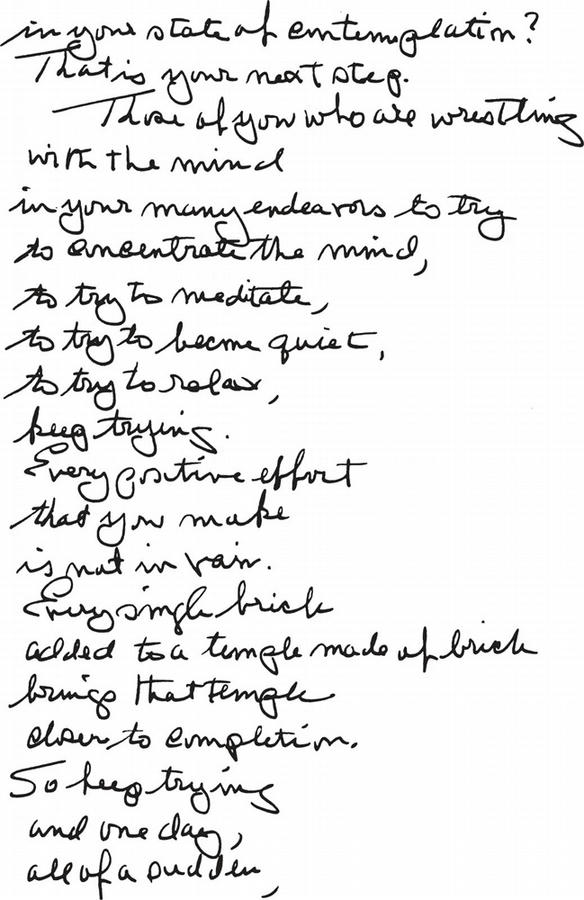 in your state of contemplation?
That is your next step.
Those of you who are wrestling
with the mind
in your many endeavors to try
to concentrate the mind,
to try to meditate,
to try to become quiet,
to try to relax,
keep trying.
Every positive effort
that you make
is not in vain.
Every single brick
added to a temple made of brick
brings that temple
closer to completion.
So keep trying
and one day,
all of a sudden,